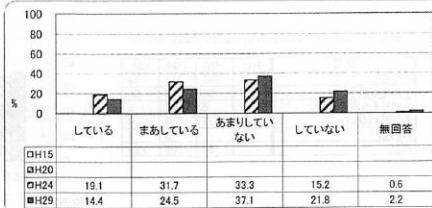 100
80
60
40
20
0
%
している まあしている あまりしていない していない 無回答
□H15
H20
H24 19.1 31.7 33.3 15.2 0.6
■H29 14.4 24.5 37.1 21.8 2.2